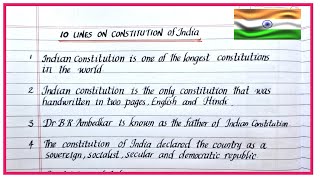 10 LINES ON CONSTITUTION of India
1 Indian Constitution is one of the longest constitutions
in the world
2 Indian constitution is the only constitution that was
handwritten in two pages. English and Hindi
3 Dr B R Ambedkar is known as the father of Indian Constitution
4 The constitution of India declared the country as a
sovereign, socialist, secular and democratic republic